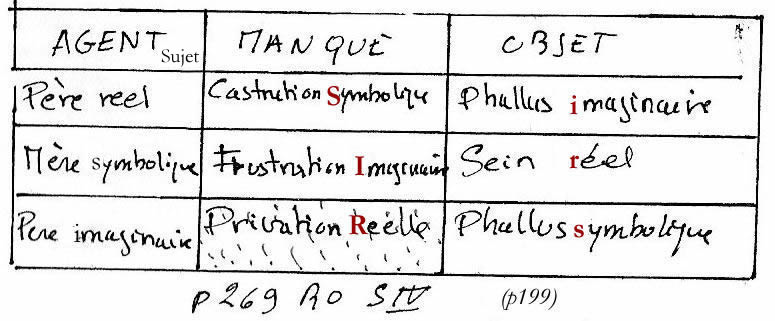 AGENT Sujet MANQUE OBJET
Père reel Castration Symbolique Phallus imaginaire
Mère symbolique Frustration Imaginaire Sein réel
Pere imaginaire Privation Reélle Phallus symbolique
p 269 RO SIV (p199)